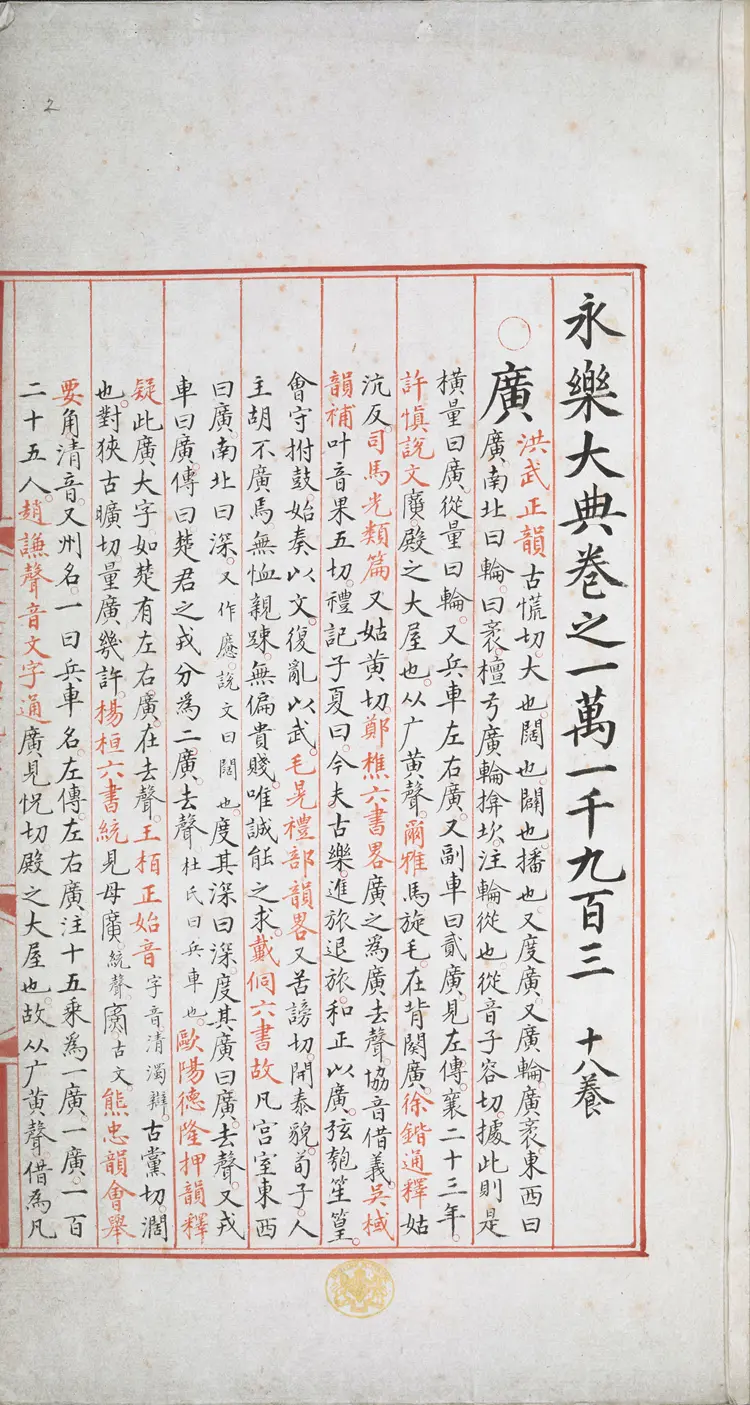 永樂大典卷之一萬一千九百三 十八養
廣
洪武正韻古慌切。大也。闊也。闢也。播也。又度廣。又廣輪。廣袤。東西曰
廣。南北曰輪。曰袤。檀弓廣輪揜坎。注輪從也。從音子容切。據此則是
橫量曰廣。從量曰輪。又兵車左右廣。又副車曰貳廣。見左傳。襄二十三年。
許慎說文廣。殿之大屋也。从广黄聲。爾雅馬旋毛。在背闋廣。徐鍇通釋姑
沆反。司馬光類篇又姑黄切。鄭樵六書畧廣之為廣去聲。協音借義。吳棫
韻補叶音果五切。禮記子夏曰。今夫古樂。進旅退旅。和正以廣。弦匏笙篁。
會守拊鼓。始奏以文。復亂以武。毛晃禮部韻畧又苦謗切。開泰貌。荀子。人
主胡不廣焉。無恤親踈。無偏貴賤。唯誠能之求。戴侗六書故凡宮室東西
曰廣。南北曰深。又作㢡。說文曰闊也。度其深曰深。度其廣曰廣。去聲。又戎
車曰廣。傳曰楚君之戎分為二廣。去聲 杜氏曰兵車也。歐陽德隆押韻釋
疑此廣大字如楚有左右廣。在去聲。王柏正始音字音清濁辯。古黨切。濶
也。對狹古曠切。量廣幾許。楊桓六書統見母廣統聲。古文。熊忠韻會舉
要角清音。又州名。一曰兵車名左傳。左右廣注十五乘為一廣。一廣。一百
二十五人。趙謙聲音文字通廣見怳切殿之大屋也。故从广黄聲。借為凡
2